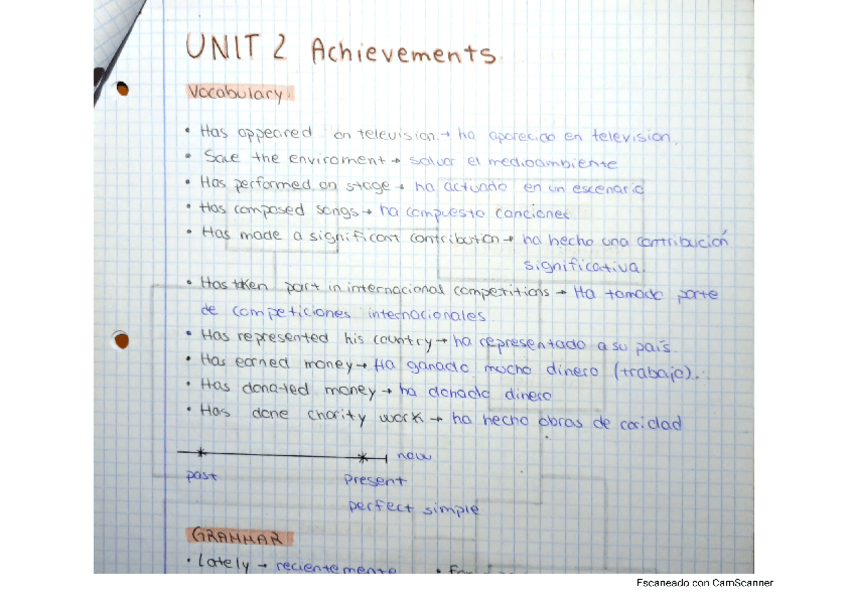 UNIT 2 Achievements
Vocabulary.
• Has appeared on television. → ha aparecido en television.
• Save the enviroment → salvar el medioambiente
• Has performed on stage → ha actuado en un escenario
• Has composed songs → ha compuesto canciones
• Has made a significant contribution → ha hecho una contribución
significativa.
• Has taken part in internacional competitions → Ha tomado parte
de competiciones internacionales
• Has represented his country → ha representado a su país.
• Has earned money → Ha ganado mucho dinero (trabajo).
• Has donated money → ha donado dinero
• Has done charity work → ha hecho obras de caridad
now
past present
perfect simple
GRAMMAR
• Lately → recientemente •
Escaneado con CamScanner